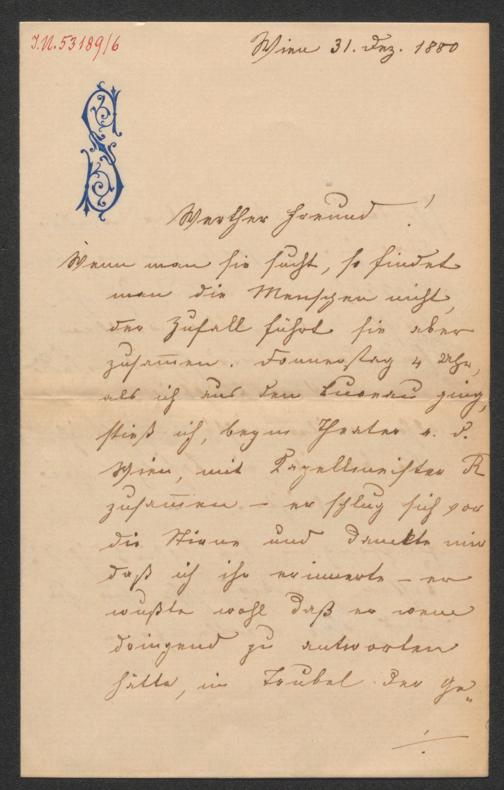 I.N. 53189/6
Wien 31. Dez. 1880
S
Werther Freund!
Wenn man sie sucht, so findet
man die Menschen nicht,
der Zufall führt sie aber
zusam̅en. Donnerstag 4 Uhr,
als ich aus dem Bureau ging,
stieß ich, beym Theater a. d.
Wien, mit Kapellmeister R
zusam̅en – er schlug sich vor
die Stirne und dankte mir
daß ich ihn erinnerte – er
wußte wohl daß er wem
dringend zu antworten
hätte, im Trubel der Ge„